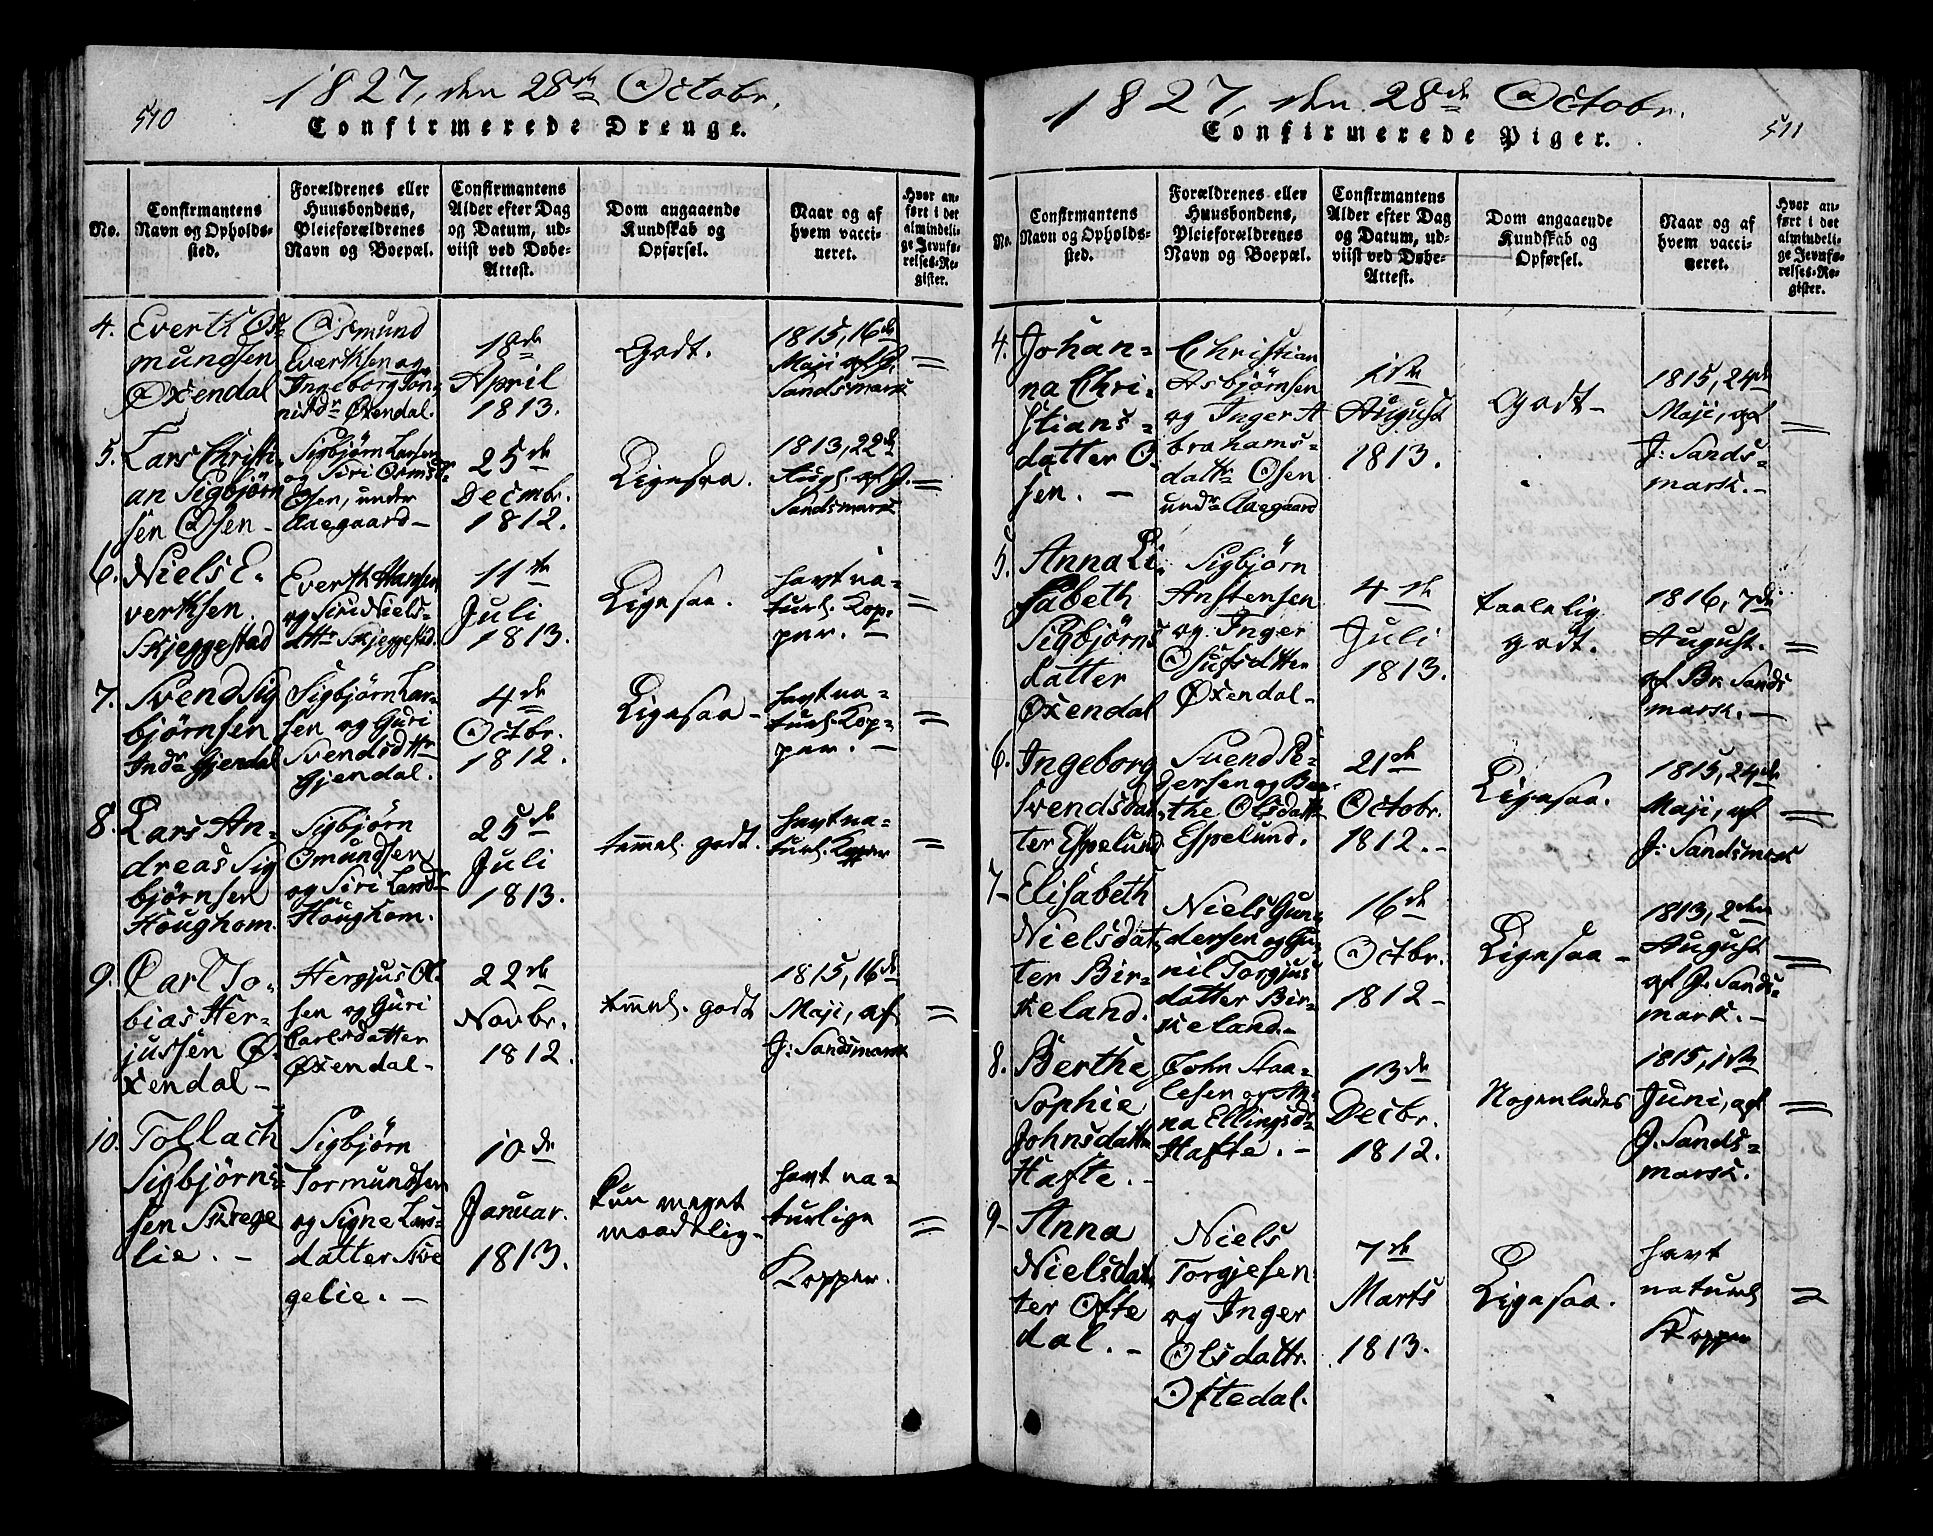 510
1827, den 28de October.
Confirmerede Drenge.
No.
Confirmantens
Navn og Opholds-
sted.
Forældrenes eller
Huusbondens,
Pleieforældrenes
Navn og Boepæl.
Confirmantens
Alder efter Dag
og Datum, ud-
viist ved Døbe-
Attest.
Dom angaaende
Kundskab og
Opførsel.
Naar og af
hvem vacci-
neret.
Hvor an-
ført i det
almindeli-
ge Jevnfø-
relses-Re-
gister.
4.
Everth Os-
mundsen
Øxendal
Osmund
Everthsen og
Ingeborg Jon
Øxendal.
18de
April
1813.
Godt.
1815, 16de
Maji af J.
Sandsmark
=
5.
Lars Christi-
an Sigbjørn
sen Osen -
Sigbjørn Larsen
og Siri Osmsdr
Osen, under
Aaegaard -
25de
Decmbr.
1812.
Ligesaa.
1813, 22de
Augs. af J.
Sandsmark
=
6.
Niels E-
verthsen
Skjeggestad
Everth Hansen
og Siri Niels-
dttr Skjeggestad.
11te
Juli
1813.
Ligesaa.
havt na-
turl. Kop-
per. -
=
7.
Svend Sig
bjørnsen
Indr Gjendal
Sigbjørn Lar-
sen og Guri
Svendsdttr
Gjendal.
4de
Octbr.
1812.
Ligesaa -
havt na-
turl. Kop-
per. -
=
8.
Lars An-
dreas Sig
bjørnsen
Houghom.
Sigbjørn
Omundsen
og Siri Larsdr
Houghom.
25de
Juli
1813.
temmel. godt.
havt na-
turl. Kopper
=
9.
Carl To-
bias Her-
jussen Ø-
xendal -
Hergjus Ol-
sen og Guri
Carlsdatter
Øxendal -
22de
Novbr.
1812.
temmel. godt
1815, 16de
Maji, af
J: Sandsmark
=
10.
Tollach
Sigbjørns-
sen Skrege
lie. -
Sigbjørn
Tormundsen
og Signe Lars-
datter Skre
gelie. -
10de
Januar.
1813.
Kun meget
maadelig -
havt na-
turlige
Kopper.
=
511
1827, den 28de October.
Confirmerede Piger.
No.
Confirmantens
Navn og Opholds-
sted.
Forældrenes eller
Huusbondens,
Pleieforældrenes
Navn og Boepæl.
Confirmantens
Alder efter Dag
og Datum, ud-
viist ved Døbe-
Attest.
Dom angaaende
Kundskab og
Opførsel.
Naar og af
hvem vacci-
neret.
Hvor an-
ført i det
almindeli-
ge Jevnfø-
relses-Re-
gister.
4.
Johan-
na Chri-
stians-
datter O-
sen. -
Christian
Asbjørnsen
og Inger A
brahams-
dattr Osen
undr Aaegaard
1ste
August
1813.
Godt -
1815, 24de
Maji, af
J: Sands-
mark. -
=
5.
Anna Li-
sabeth
Sigbjørns
datter
Øxendal
Sigbjørn
Anstensen
og Inger
Osulfsdatter
Øxendal -
4de
Juli
1813.
taalelig
godt.
1816, 7de
August.
af Br. Sands
mark. -
=
6.
Ingeborg
Svendsdat-
ter Espelund
Svend Pe-
dersen og Ber-
the Olsdattr
Espelund.
21de
Octobr.
1812. -
Ligesaa.
1815, 24de
Maji, af
J: Sandsmark
=
7 -
Elisabeth
Nielsdat-
ter Bir-
keland.
Niels Gun-
dersen og Gu-
nil Torgjus
datter Bir-
keland. -
16de
Octbr.
1812 -
Ligesaa -
1813, 2den
August
af J. Sands-
mark. -
=
8.
Berthe
Sophie
Johnsdatter
Hafte. -
John Staa-
lesen og An-
na Ellingsdr
Hafte. -
13de
Decbr.
1812.
Nogenledes
1815, 1ste
Juni, af
J. Sands-
mark.
=
9 -
Anna
Nielsdat-
ter Ofte
dal. -
Niels
Torgjesen
og Inger
Olsdattr.
Oftedal.
7de
Marts
1813.
Ligesaa.
havt
naturl
Kopper
=